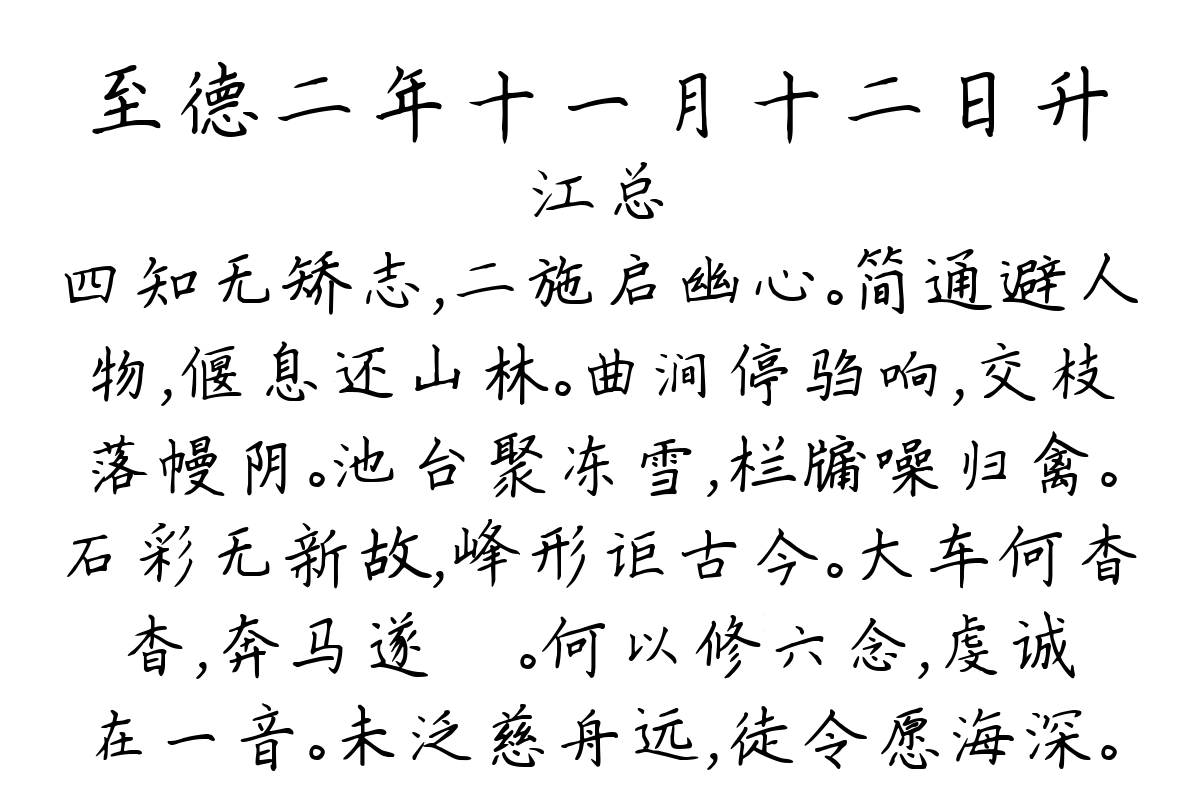 至德二年十一月十二日升
江总
四知无矫志,二施启幽心。简通避人
物,偃息还山林。曲涧停驺响,交枝
落幔阴。池台聚冻雪,栏牖噪归禽。
石彩无新故,峰形讵古今。大车何杳
杳,奔马遂 。何以修六念,虔诚
在一音。未泛慈舟远,徒令愿海深。